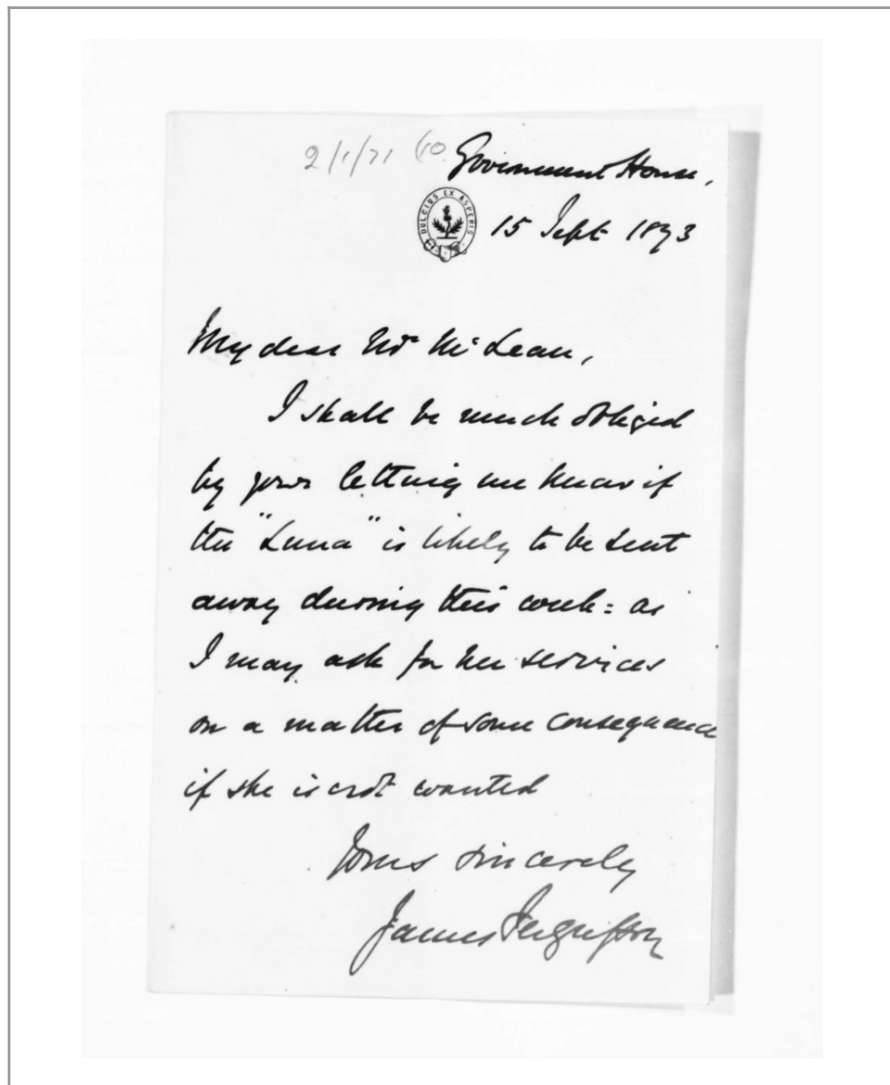 2/1/71 (10.
Government House,
DULCIUS EX ASPERIS
15 Sept 1873
My dear Mr McLean,
I shall be much obliged
by your letting me know if
the "Luna" is likely to be sent
away during this week = as
I may ask for her services
on a matter of some consequence
if she is not wanted
Yours sincerely
James Fergusson